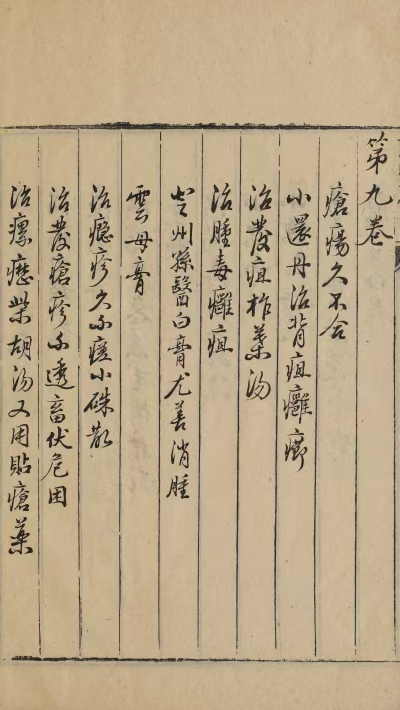 第九卷
瘡瘍久不合
小還丹治背疽癰癤
治發疽柞葉湯
治腫毒癰疽
登州孫醫白膏尤善消腫
雲母膏
治癮疹久不瘥小硃散
治發瘡疹不透畜伏危困
治瘰癧柴胡湯又用貼瘡藥